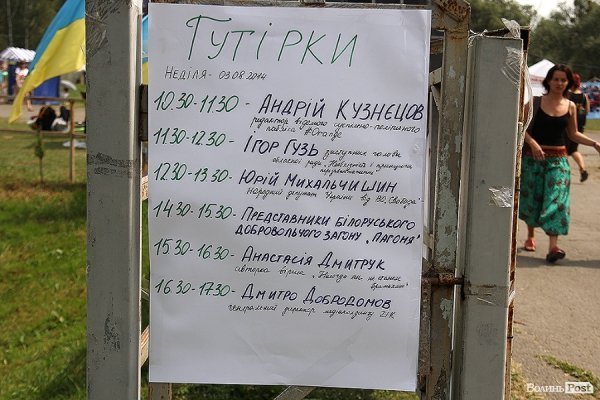 ГУТІРКИ
НЕДІЛЯ - 03.08.2014
10.30-11.30 - АНДРІЙ КУЗНЄЦОВ
редактор відомого суспільно-політичного
#Orange
11.30-12.30 - ІГОР ГУЗЬ заступник голови
обласної ради,
12.30-13.30 - ЮРІЙ МИХАЛЬЧИШИН
народний депутат України від ВО „Свобода"
14.30-15.30 - ПРЕДСТАВНИКИ БІЛОРУСЬКОГО
ДОБРОВОЛЬЧОГО ЗАГОНУ „ПАГОНЯ"
15.30-16.30 - АНАСТАСІЯ ДМИТРУК
авторка вірша „Никогда мы не станем
братьями"
16.30-17.30 - ДМИТРО ДОБРОДОМОВ
генеральний директор медіахолдингу ZIK
ВолиньPost